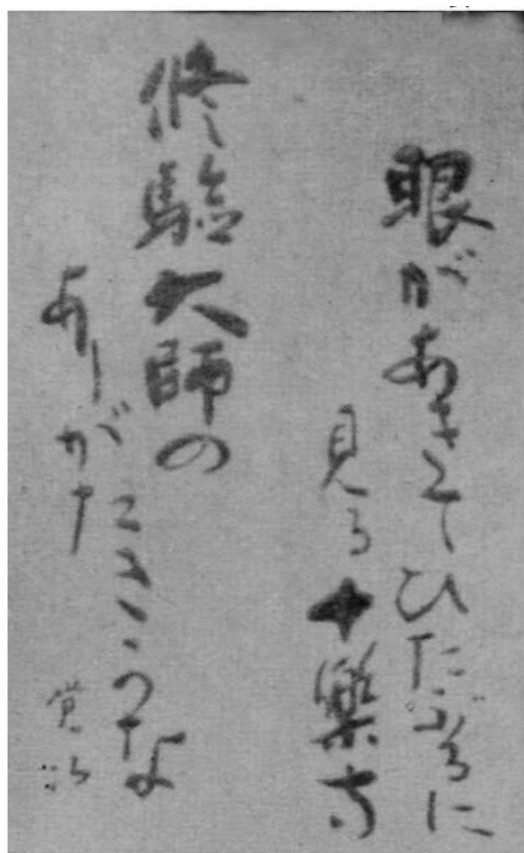 眼があきてひたぶるに
見る十樂寺
修驗大師の
ありがたさ